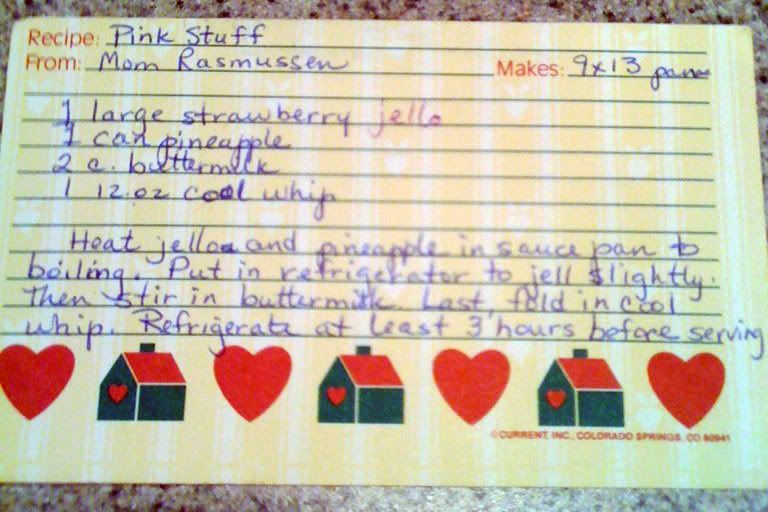 Recipe: Pink Stuff
From: Mom Rasmussen Makes: 9x13 pan
1 large strawberry jello
1 can pineapple
2 c. buttermilk
1 12.oz cool whip
Heat jello and pineapple in sauce pan to
boiling. Put in refrigerator to jell slightly.
Then stir in buttermilk. Last fold in cool
whip. Refrigerate at least 3 hours before serving
©CURRENT, INC., COLORADO SPRINGS, CO 80941